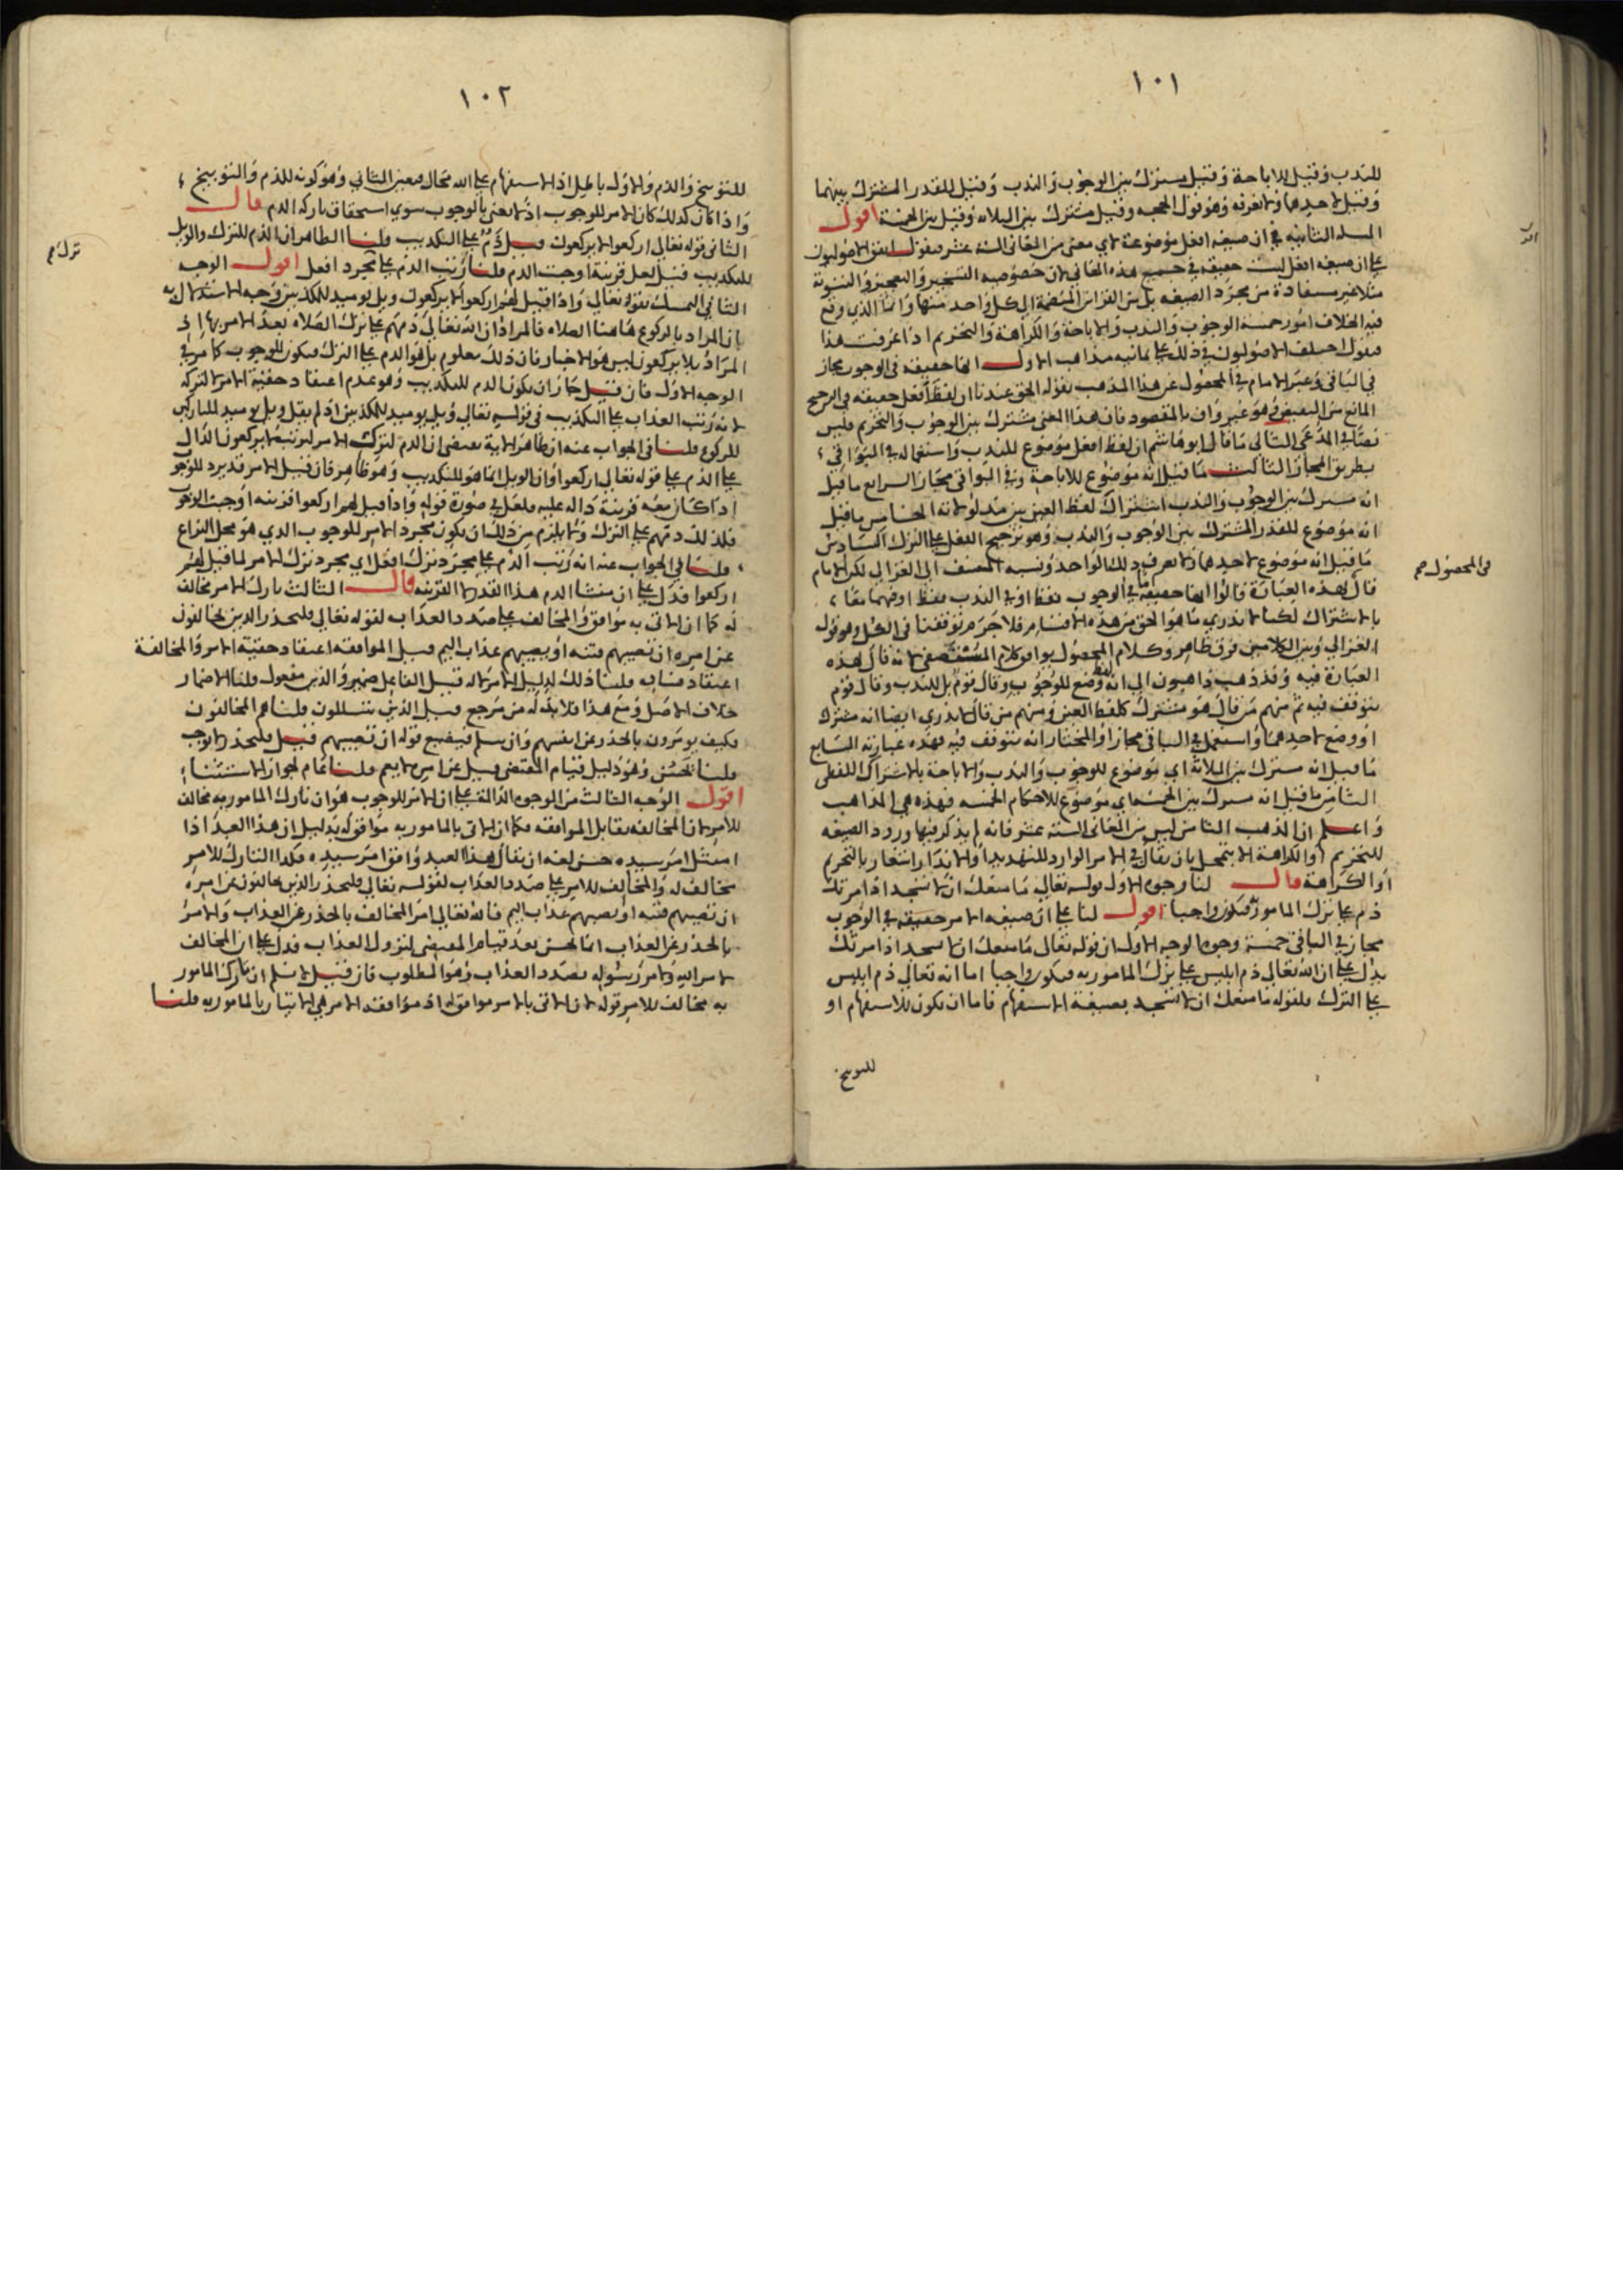 ١٠١
للندب وقيل للاباحة وقيل مشترك بين الوجوب والندب وقيل للقدر المشترك بينهما
وقيل لاحدهما ولا نعرفه وهو قول الحجه وقيل مشترك بين الثلاثه وقيل بين الخمسة اقول
المسله الثانيه في ان صيغه افعل موضوعة لاي معنى من المعاني الستة عشر فنقول اتفق الاصوليون
على ان صيغه افعل ليست حقيقه في جميع هذه المعاني لان خصوصيه التسخير والتعجيز والتسوية
مثلا غير مستفادة من مجرد الصيغه بل من القراين المنضمة الى كل واحد منها وانما الذي وقع
فيه الخلاف امور خمسة الوجوب والندب والاباحة والكراهة والتحريم اذا عرفت هذا
فنقول اختلف الاصوليون في ذلك على ثمانيه مذاهب الاول انها حقيقه في الوجوب مجاز
في الباقي وعبر الامام في المحصول عن هذا المذهب بقوله الحق عندنا ان لفظة افعل حقيقه في الترجيح
المانع من النقيض وهو غير واف بالمقصود فان هذا المعنى مشترك بين الوجوب والتحريم فليس
نصا في المدعى الثاني ما قال ابو هاشم ان لفظ افعل موضوع للندب واستعماله في البواقي
بطريق المجاز الثالث ما قيل انه موضوع للاباحة وفي البواقي مجاز الرابع ما قيل
انه مشترك بين الوجوب والندب اشتراك لفظ العين بين مدلولاته الخامس ما قيل
انه موضوع للقدر المشترك بين الوجوب والندب وهو ترجيح الفعل على الترك السادس
ما قيل انه موضوع لاحدهما ولا نعرف ذلك الواحد ونسبه المصنف الى الغزالي لكن الامام
قال بهذه العبارة قالوا انها حقيقة اما في الوجوب فقط او في الندب فقط او فيهما معا
بالاشتراك لكنا لا ندري ما هو الحق من هذه الاقسام فلا جرم توقفنا في الكل وهو قول
الغزالي وبين الكلامين فرق ظاهر وكلام المحصول يوافق كلام المستصفى لانه قال هذه
العبارة فيه وقد ذهب ذاهبون الى انه لفظ وضع للوجوب وقال قوم بل للندب وقال قوم
نتوقف فيه ثم منهم من قال هو مشترك كلفظ العين ومنهم من قال لا ندري ايضا انه مشترك
او وضع لاحدهما واستعمل في الباقي مجازا والمختار انه نتوقف فيه فهذه عبارته السابع
ما قيل انه مشترك بين الثلاثة اي موضوع للوجوب والندب والاباحة بالاشتراك اللفظي
الثامن ما قيل انه مشترك بين الخمسة اي موضوع للاحكام الخمسه فهذه هي المذاهب
واعلم ان المذهب الثامن ليس من المعاني الستة عشر فانه لم يذكر فيها ورود الصيغه
للتحريم او الكراهة الا بتمحل بان يقال في الامر الوارد للتهديد او الانذار اشعار بالتحريم
او الكراهة قال لنا وجوه الاول قوله تعالى ما منعك ان لا تسجد اذ امرتك
ذم على ترك المامور فيكون واجبا اقول لنا على ان صيغه الامر حقيقه في الوجوب
مجاز في الباقي خمسة وجوه الوجه الاول ان قوله تعالى ما منعك ان لا تسجد اذ امرتك
يدل على ان الله تعالى ذم ابليس على ترك المامور به فيكون واجبا اما انه تعالى ذم ابليس
على الترك فلقوله ما منعك ان لا تسجد بصيغة الاستفهام فاما ان تكون للاستفهام او
للتوبيخ
في المحصول صح
١٠٢
للتوبيخ والذم والاول باطل اذ الاستفهام على الله محال فتعين الثاني وهو كونه للذم والتوبيخ
واذا كان كذلك كان الامر للوجوب اذ لا نعني بالوجوب سوى استحقاق تاركه الذم قال
الثاني قوله تعالى اركعوا لا يركعون قيل ذم على التكذيب قلنا الظاهر ان الذم للترك والويل
للتكذيب قيل لعل قرينة اوجبت الذم قلنا رتب الذم على مجرد افعل اقول الوجه
الثاني التمسك بقوله تعالى واذا قيل لهم اركعوا لا يركعون ويل يوميد للمكذبين وجه الاستدلال به
بان المراد بالركوع هاهنا الصلاه فالمراد ان الله تعالى ذمهم على ترك الصلاه بعد الامر بها اذ
المراد بلا يركعون ليس هو الاخبار فان ذلك معلوم بل هو الذم على الترك فيكون للوجوب كما مر في
الوجه الاول فان قيل جاز ان يكون الذم للتكذيب وهو عدم اعتقاد حقية الامر لا لتركه
لانه رتب العذاب على التكذيب في قوله تعالى ويل يوميد للمكذبين اذ لم يقل ويل يوميد للتاركين
للركوع قلنا في الجواب عنه ان ظاهر الاية يقتضي ان الذم لترك الامر لترتيب لا يركعون الدال
على الذم على قوله تعالى اركعوا وان الويل انما هو للتكذيب وهو ظاهر فان قيل الامر قد يرد للوجوب
اذا كان معه قرينة داله عليه ولعل في صورة قوله واذا قيل لهم اركعوا قرينه اوجبت الوجوب
فلذلك ذمهم على الترك ولا يلزم من ذلك ان يكون مجرد الامر للوجوب الذي هو محل النزاع
قلنا في الجواب عنه انه رتب الذم على مجرد ترك افعل اي مجرد ترك الامر لما قيل لهم
اركعوا فدل على ان منشا الذم هذا القدر لا القرينه قال الثالث تارك الامر مخالف
له كما ان الاتي به موافق والمخالف على صدد العذاب لقوله تعالى فليحذر الذين يخالفون
عن امره ان تصيبهم فتنه او يصيبهم عذاب اليم قيل الموافقه اعتقاد حقية الامر والمخالفة
اعتقاد فساده قلنا ذلك لدليل الامر لا له قيل الفاعل ضمير والذين مفعول قلنا الاضمار
خلاف الاصل ومع هذا فلا بد له من مرجع قيل الذين يتسللون قلنا هم المخالفون
فكيف يومرون بالحذر عن انفسهم وان سلم فيضيع قوله ان تصيبهم قيل فليحذر لا يوجب
قلنا يحسن وهو دليل قيام المقتضى قيل عن امره لا يعم قلنا عام لجواز الاستثناء
اقول الوجه الثالث من الوجوه الدالة على ان الامر للوجوب هو ان تارك المامور به مخالف
للامر لان المخالفه تقابل الموافقه فكما ان الاتي بالمامور به موافق له بدليل ان هذا العبد اذا
امتثل امر سيده حسن لغه ان يقال هذا العبد وافق امر سيده فكذا التارك للامر
مخالف له والمخالف للامر على صدد العذاب لقوله تعالى فليحذر الذين يخالفون عن امره
ان تصيبهم فتنه او يصيبهم عذاب اليم فالله تعالى امر المخالف بالحذر عن العذاب والامر
بالحذر عن العذاب انما يحسن بعد قيام المقتضى لنزول العذاب فدل على ان المخالف
لامر الله وامر رسوله بصدد العذاب وهو المطلوب فان قيل لا نسلم ان تارك المامور
به مخالف للامر قوله لان الاتي بالامر موافق له اذ موافقة الامر هي الاتيان بالمامور به قلنا